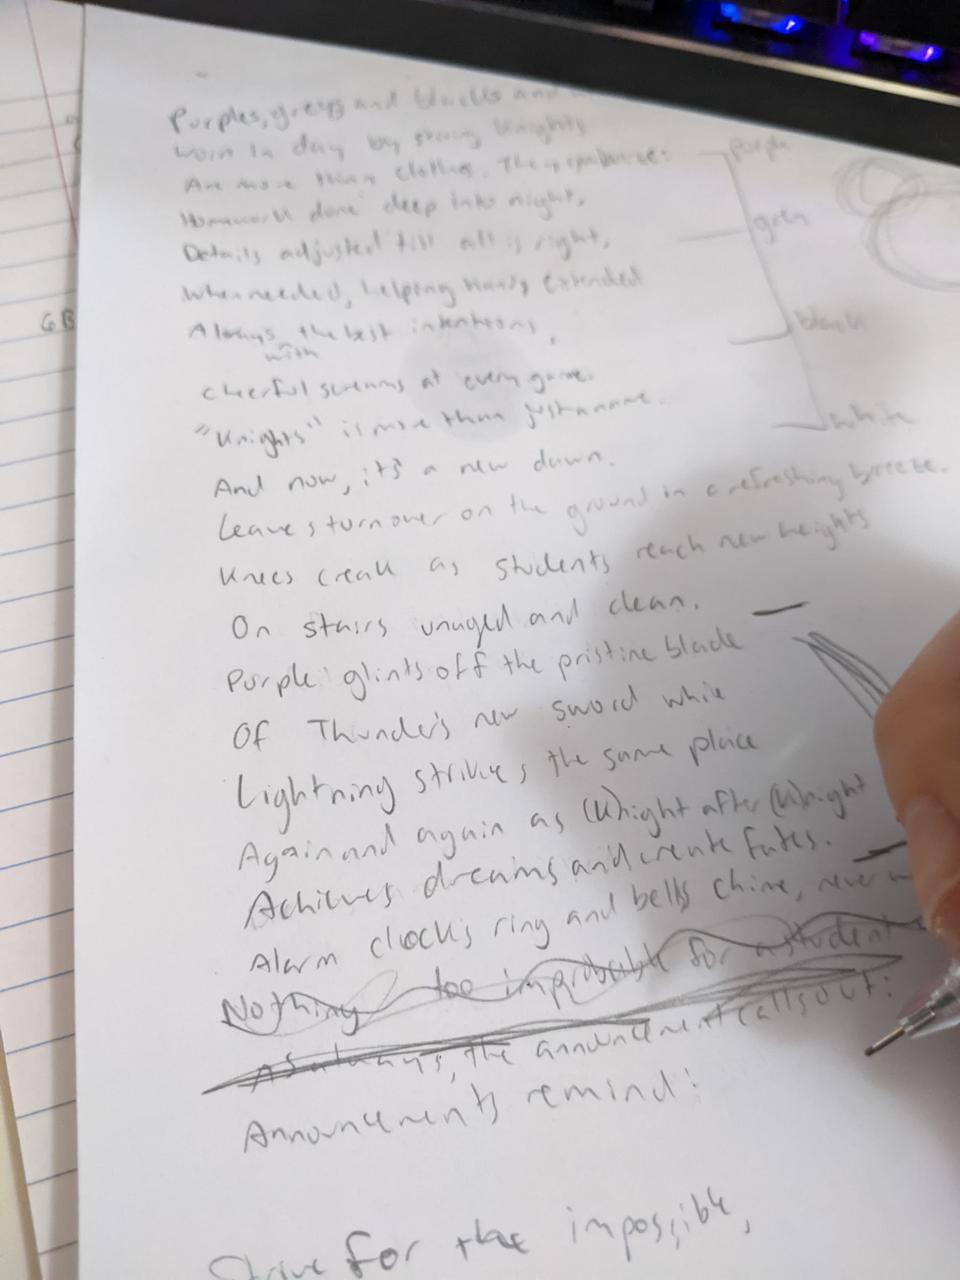 Purples, greys and blacks and
worn in day by strong knights
Are more than clothes. They symbolize:
purple
Homework done deep into night,
grey
Details adjusted till all is right,
When needed, helping hands extended
black
Always with the best intentions,
Cheerful screams at every game.
white
"Knights" is more than just a name.
And now, it's a new dawn.
Leaves turn over on the ground in a refreshing breeze.
Knees creak as students reach new heights
On stairs unaged and clean.
Purple glints off the pristine blade
Of Thunder's new sword while
Lightning strikes the same place
Again and again as (K)night after (K)night
Achieves dreams and create fates.
Alarm clocks ring and bells chime, never
Nothing too improbable for a student
As always, the announcement calls out:
Announcements remind:
Strive for the impossible,
6B